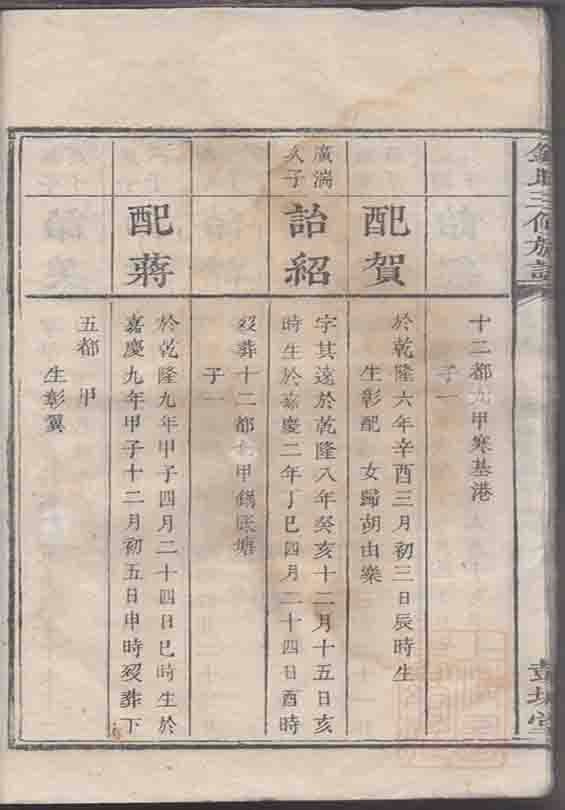 十二都九甲寒基港
子一
配賀
於乾隆六年辛酉三月初三日辰時生
生彰配 女歸胡由樂
廣湍
久子
詒紹
字其遠於乾隆八年癸亥十二月十五日亥
時生於嘉慶二年丁巳四月二十四日酉時
歿葬十二都 甲 塘
子一
配蔣
於乾隆九年甲子四月二十四日巳時生於
嘉慶九年甲子十二月初五日申時歿葬下
五都 甲
生彰翼
三修族譜
堂